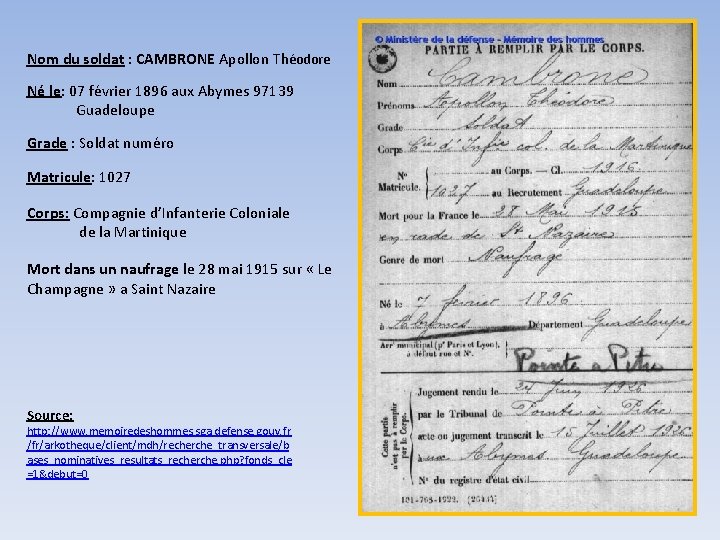 Nom du soldat : CAMBRONE Apollon Théodore
Né le: 07 février 1896 aux Abymes 97139
Guadeloupe
Grade : Soldat numéro
Matricule: 1027
Corps: Compagnie d’Infanterie Coloniale
de la Martinique
Mort dans un naufrage le 28 mai 1915 sur « Le
Champagne » a Saint Nazaire
Source:
http://www.memoiredeshommes.sga.defense.gouv.fr
/fr/arkotheque/client/mdh/recherche_transversale/b
ases_nominatives_resultats_recherche.php?fonds_cle
=1&debut=0
© Ministère de la défense - Mémoire des hommes
PARTIE À REMPLIR PAR LE CORPS.
Nom Cambrone
Prénoms Apollon Théodore
Grade Soldat
Corps Cie d'Infie col. de la Martinique
N° au Corps. — Cl. 1916
Matricule. 1027 au Recrutement Guadeloupe
Mort pour la France le 28 Mai 1915
en rade de St Nazaire
Genre de mort Naufrage
Né le 7 février 1896
à Abymes Département Guadeloupe
Arrt municipal (pr Paris et Lyon),
à défaut rue et N°.
Pointe à Pitre
Cette partie n'est pas à remplir par le Corps.
Jugement rendu le 24 Juin 1926
par le Tribunal de Pointe à Pitre
acte ou jugement transcrit le 15 Juillet 1926
aux Abymes Guadeloupe
N° du registre d'état civil
101-708-1922. [26434]